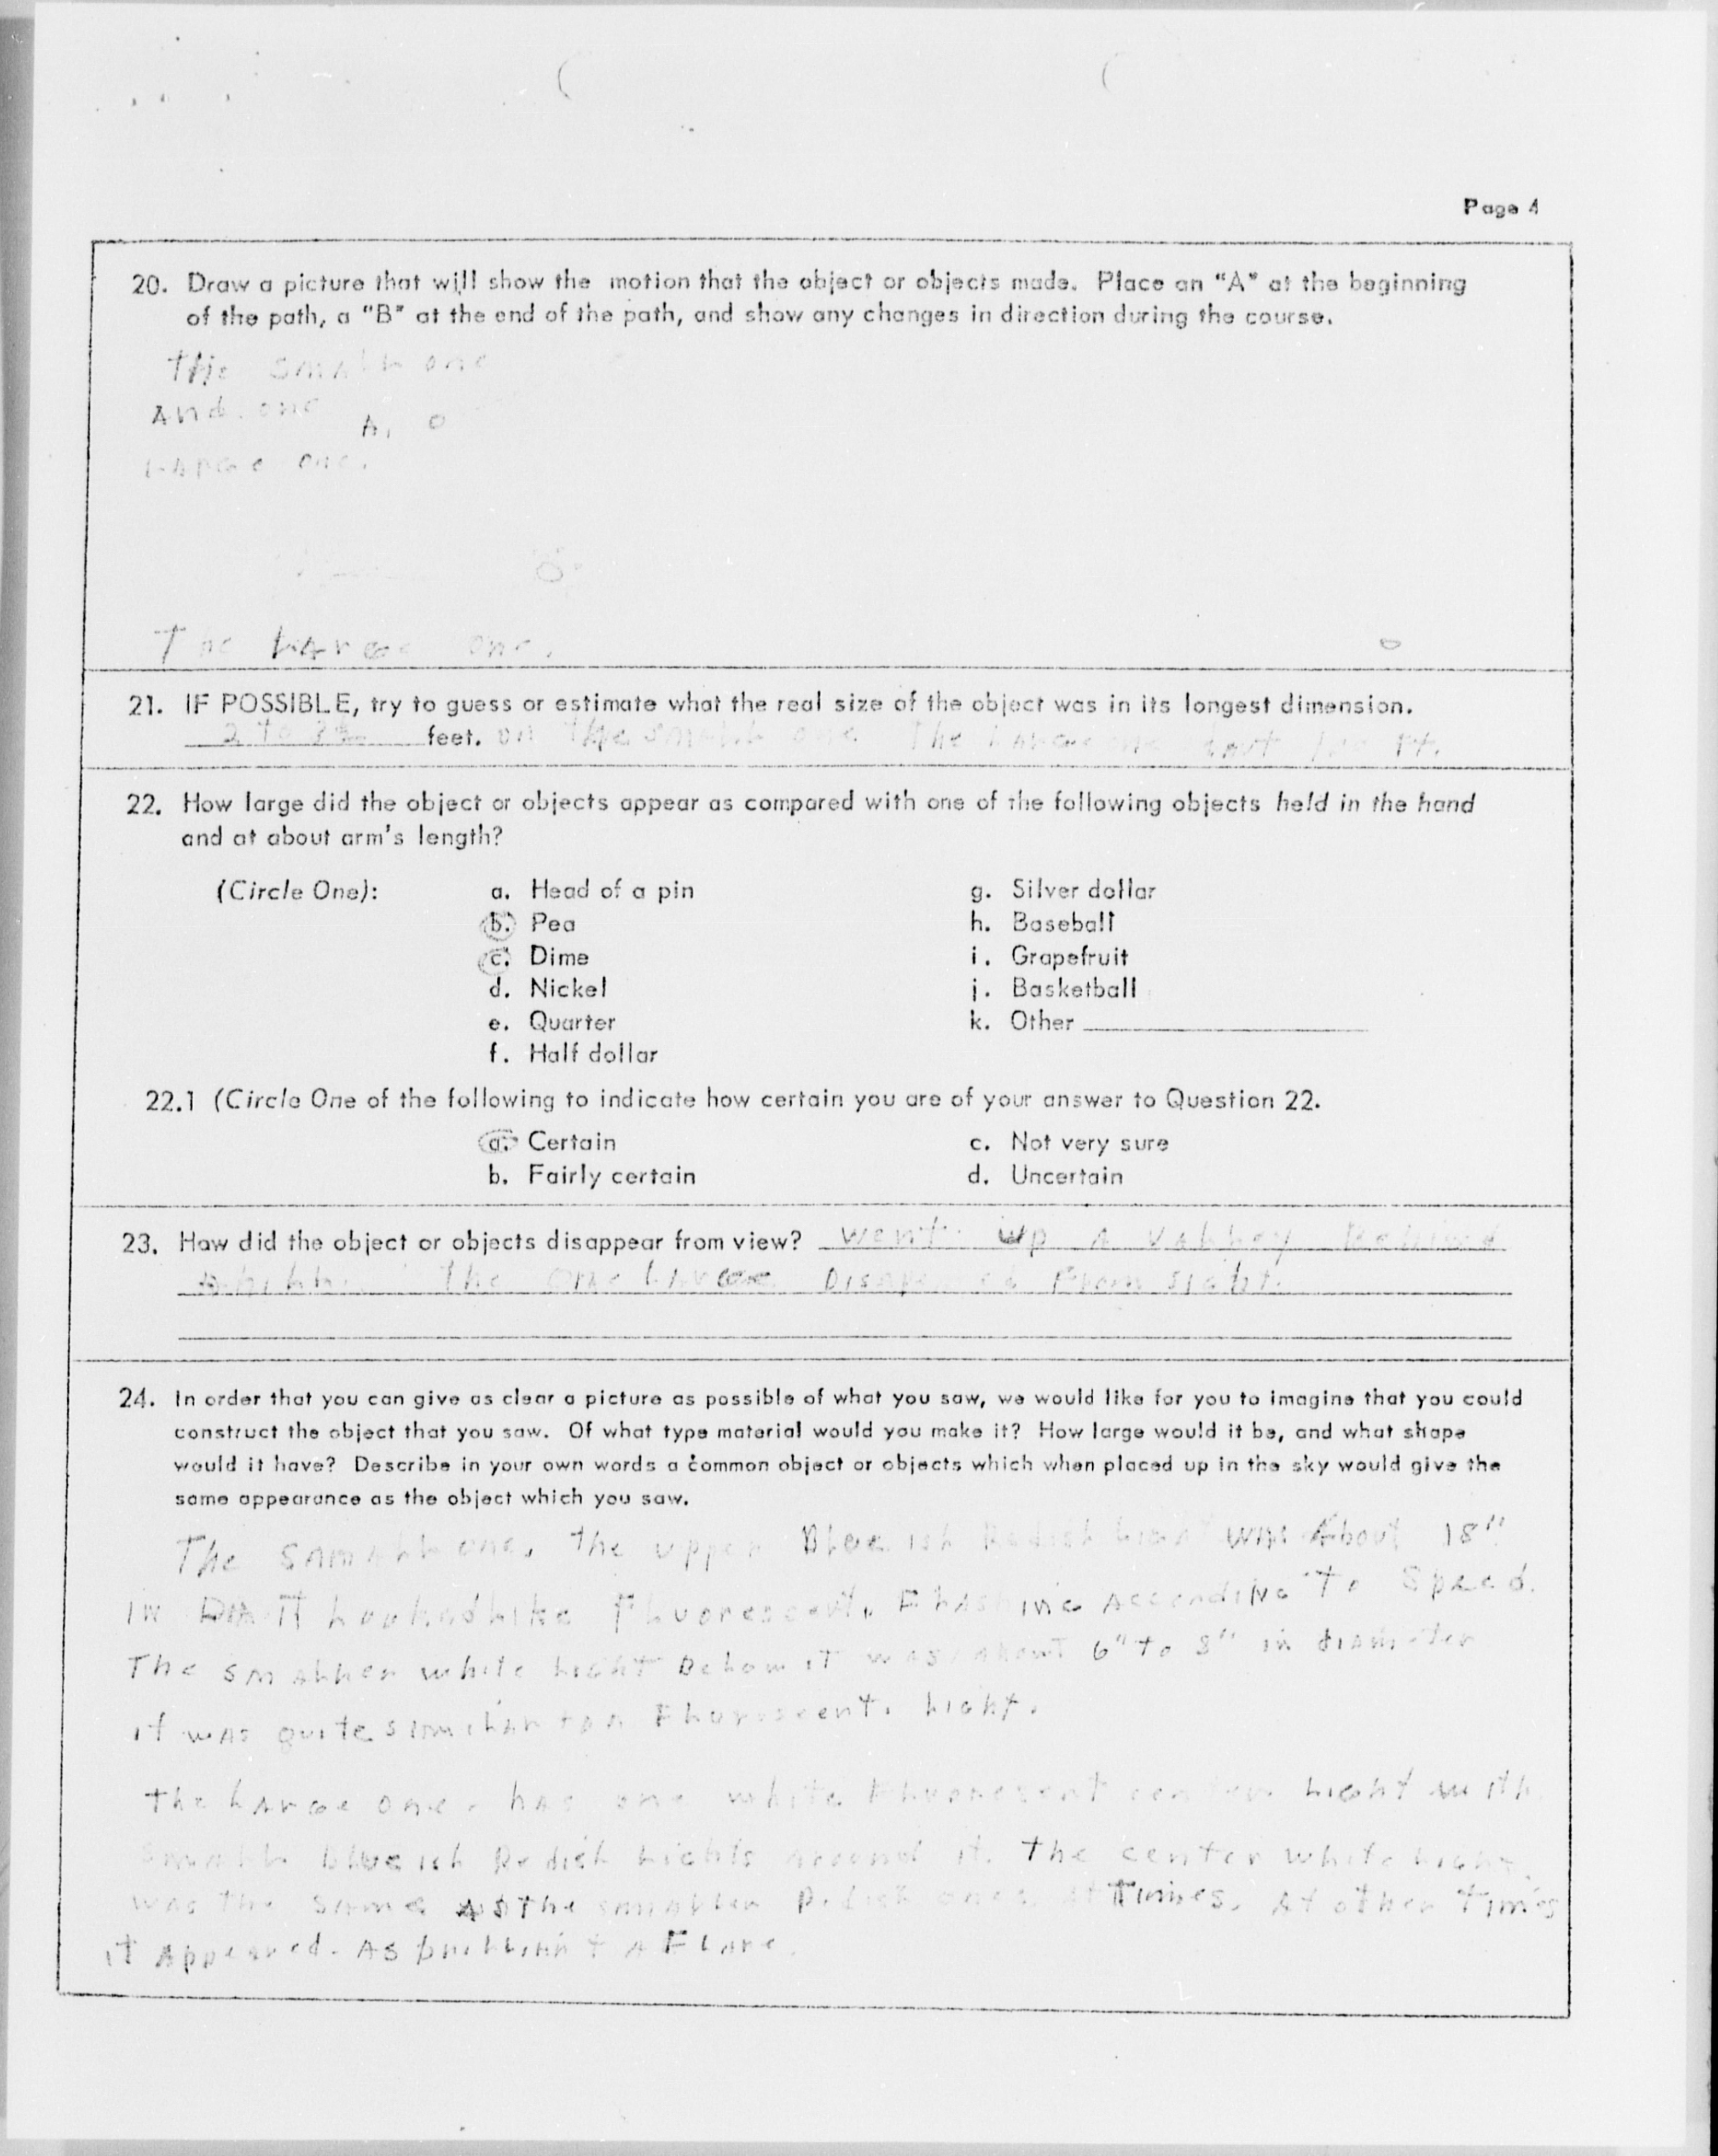 Page 4
20. Draw a picture that will show the motion that the object or objects made. Place an "A" at the beginning
of the path, a "B" at the end of the path, and show any changes in direction during the course.
The small one
And one
A. o
Large one.
The Large one.
21. IF POSSIBLE, try to guess or estimate what the real size of the object was in its longest dimension.
2 to feet. on the small one The Large one ft.
22. How large did the object or objects appear as compared with one of the following objects held in the hand
and at about arm's length?
(Circle One): a. Head of a pin g. Silver dollar
b. Pea h. Baseball
c. Dime i. Grapefruit
d. Nickel j. Basketball
e. Quarter k. Other
f. Half dollar
22.1 (Circle One of the following to indicate how certain you are of your answer to Question 22.
a. Certain c. Not very sure
b. Fairly certain d. Uncertain
23. How did the object or objects disappear from view? went up a valley Behind
a hill. The one Large From sight.
24. In order that you can give as clear a picture as possible of what you saw, we would like for you to imagine that you could
construct the object that you saw. Of what type material would you make it? How large would it be, and what shape
would it have? Describe in your own words a common object or objects which when placed up in the sky would give the
same appearance as the object which you saw.
The one. the upper Blueish Redish Light was About 18"
in Looked Like Fluorescent. Flashing According To Speed.
The smaller white Light Below it was about 6" to 8" in diameter
it was quite similar to a Fluorescent. Light.
the Large one. has one white Fluorescent center Light with
small Blueish Redish Lights around it. The center white Light.
was the same as the smaller Redish ones at Times. At other Times
it Appeared. As brilliant a Flare.